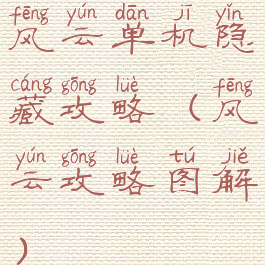 fēng yún dān jī yǐn
风云单机隐
cáng gōng lüè fēng
藏攻略(风
yún gōng lüè tú jiě
云攻略图解
)